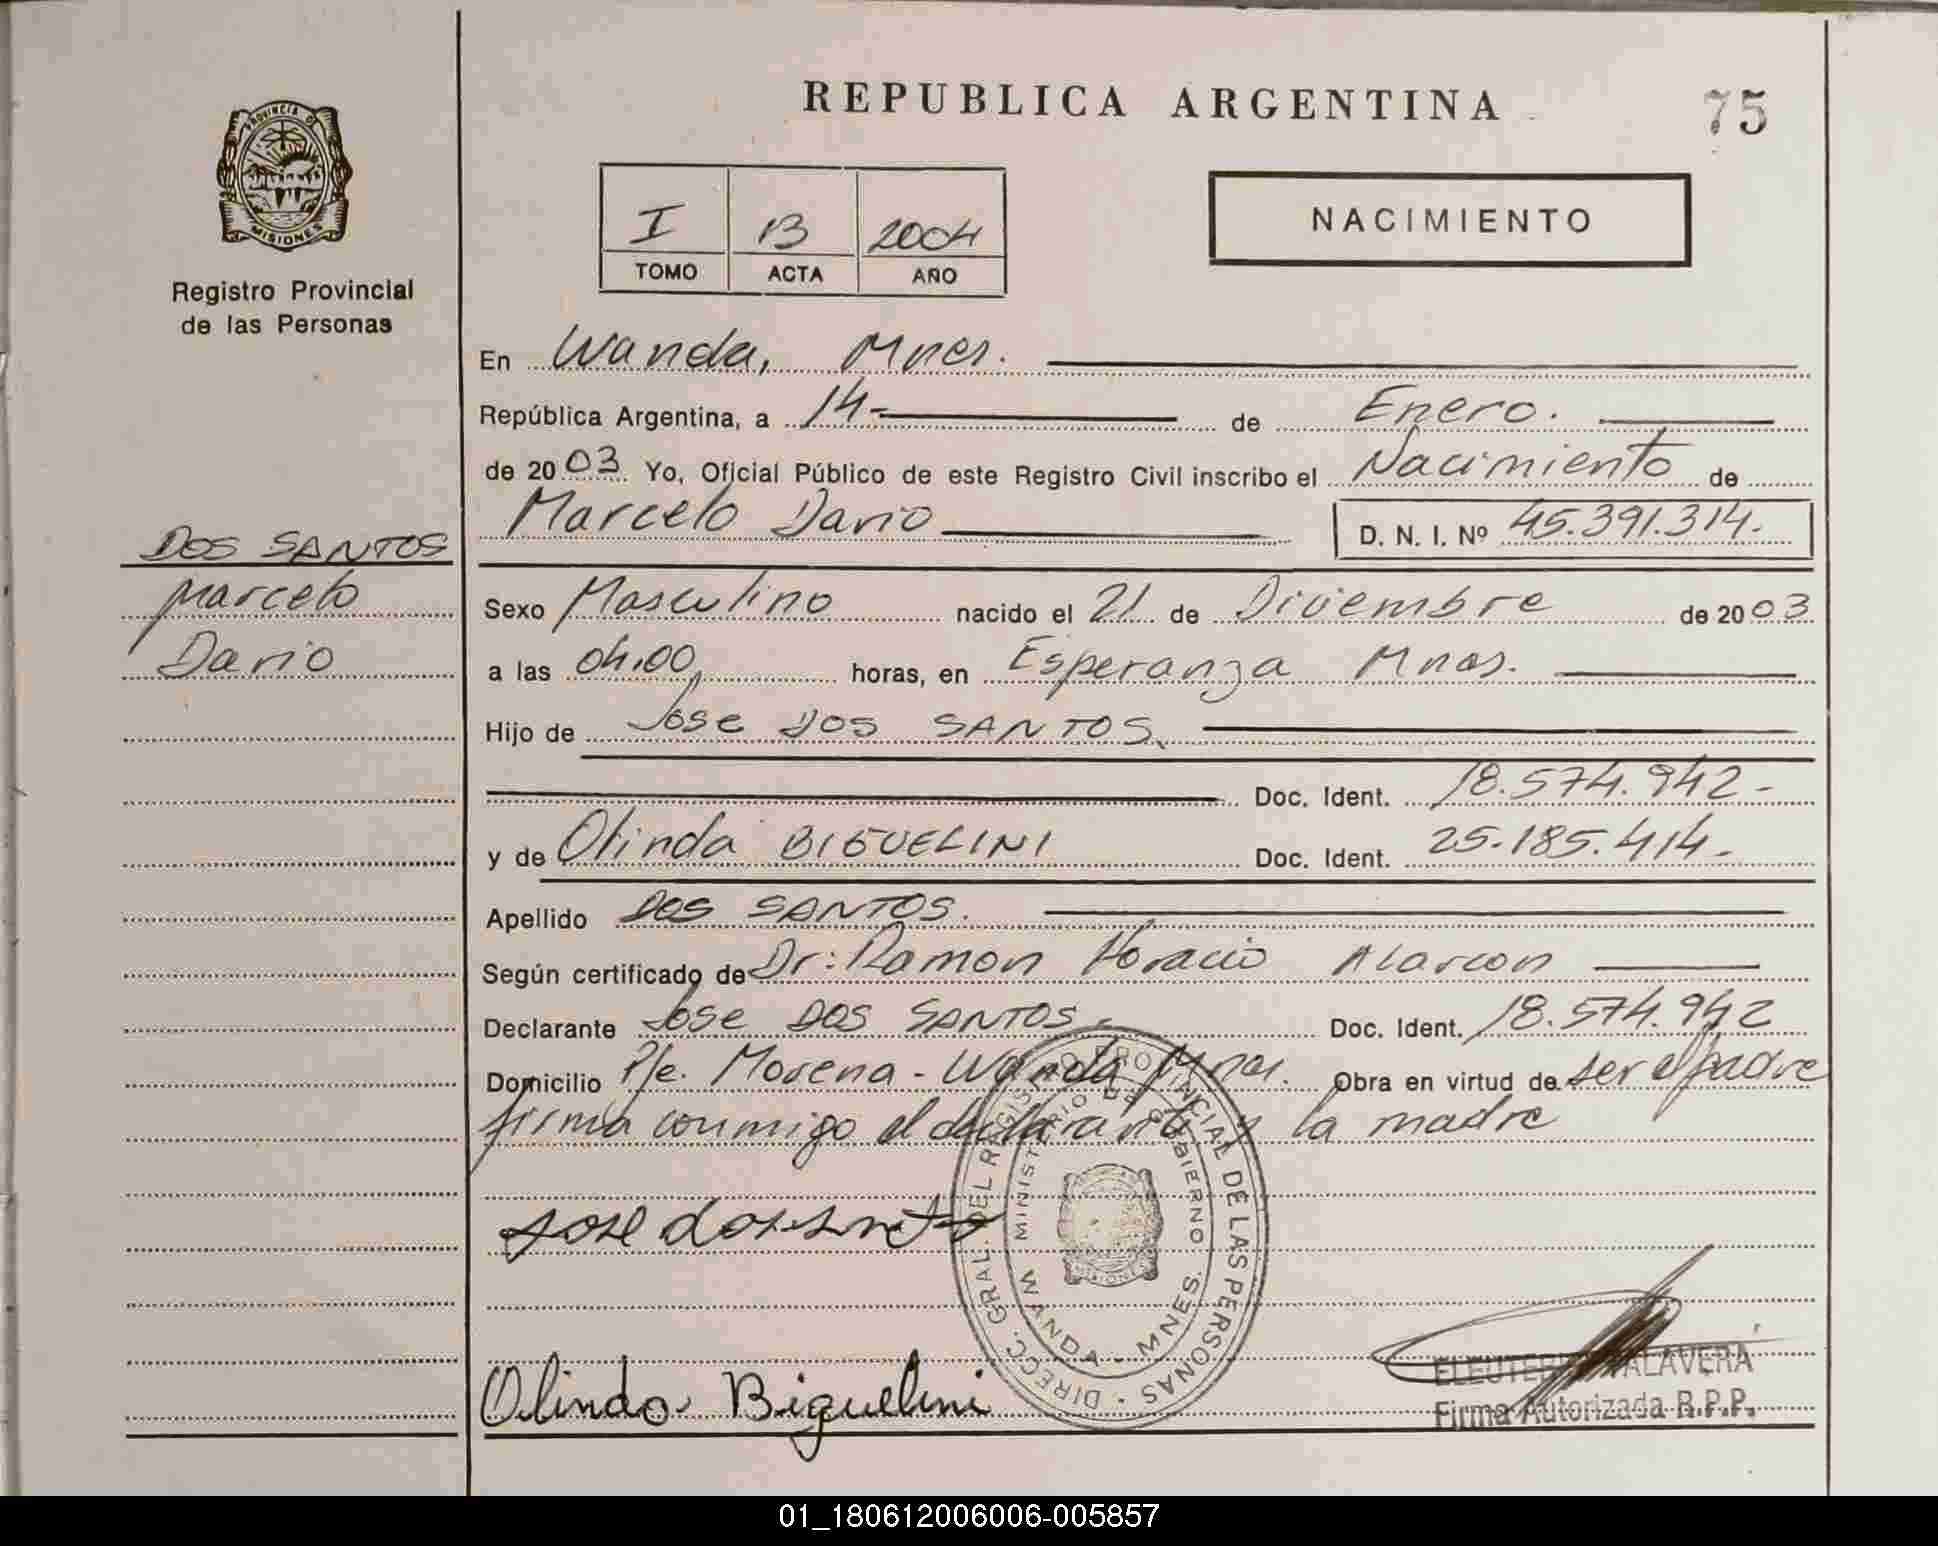 REPUBLICA ARGENTINA
75
PROVINCIA DE
MISIONES
Registro Provincial
de las Personas
I 13 2004
TOMO ACTA AÑO
NACIMIENTO
En Wanda, Mnes.
República Argentina, a 14- de Enero.
de 2003 Yo, Oficial Público de este Registro Civil inscribo el Nacimiento de
Marcelo Dario D. N. I. Nº 45.391.314.
DOS SANTOS
Marcelo
Dario
Sexo Masculino nacido el 21 de Diciembre de 2003
a las 04.00 horas, en Esperanza Mnes.
Hijo de Jose DOS SANTOS.
Doc. Ident. 18.574.942-
y de Olinda BIGUELINI Doc. Ident. 25.185.414-
Apellido DOS SANTOS.
Según certificado de Dr: Ramon Horacio Alarcon
Declarante Jose DOS SANTOS- Doc. Ident. 18.574.942
Domicilio Pje. Morena - Wanda Mnes. Obra en virtud de ser el padre
firma conmigo el declarante y la madre
DIRECC. GRAL. DEL REGISTRO PROVINCIAL DE LAS PERSONAS
MINISTERIO DE GOBIERNO
WANDA - MNES.
MISIONES
Jose dos
Olinda Biguelini
TALAVERA
Firma Autorizada R.P.P.
01_180612006006-005857